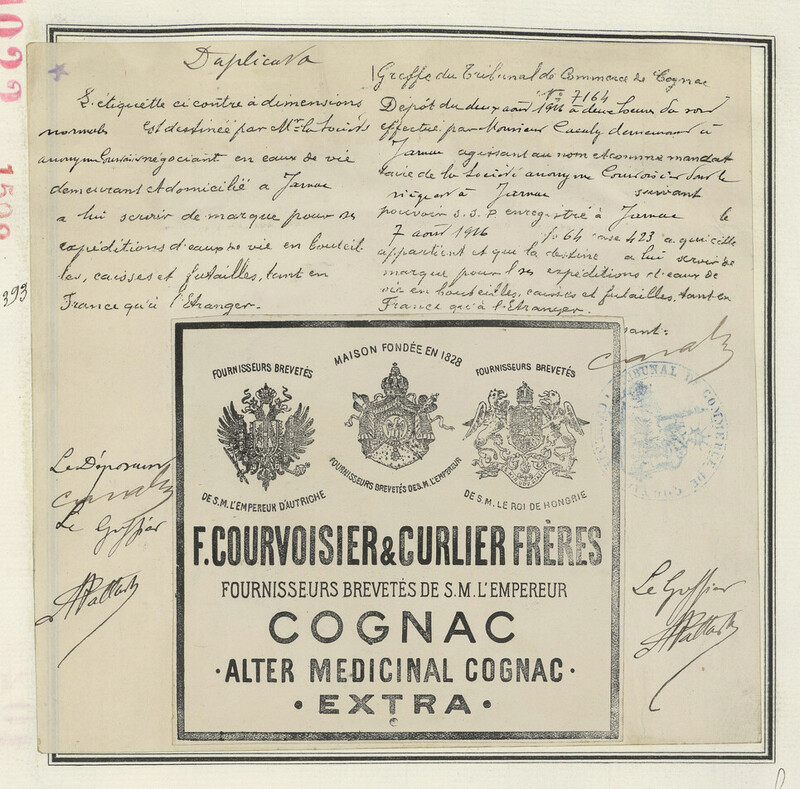 Duplicata
L'étiquette ci contre à dimensions
normales Est destinée par Mr la Société
anonyme Courvoisier négociant en eaux de vie
demeurant et domicilié à Jarnac
a lui servir de marque pour ses
expéditions d'eaux de vie en bouteil
les, caisses et futailles, tant en
France qu'à l'Etranger.
Le Déposant
Le Greffier
Greffe du Tribunal de Commerce de Cognac
No 7164
Dépôt du deux août 1926 à deux heures du soir
effectué par Monsieur demeurant à
Jarnac agissant au nom et comme mandat
taire de la Société anonyme Courvoisier dont le
siège est à Jarnac suivant
pouvoir S.S.P. enregistré à Jarnac le
7 août 1926 fo 64 case 423 a qui elle
appartient et que la destine a lui servir de
marque pour ses expéditions d'eaux de
vie en bouteilles, caisses et futailles, tant en
France qu'à l'Etranger.
sant:
TRIBUNAL DE COMMERCE DE COGNAC
393
FOURNISSEURS BREVETÉS
DE S.M. L'EMPEREUR D'AUTRICHE
MAISON FONDÉE EN 1828
FOURNISSEURS BREVETÉS DE S.M. L'EMPEREUR
FOURNISSEURS BREVETÉS
DE S.M. LE ROI DE HONGRIE
F. COURVOISIER & CURLIER FRÈRES
FOURNISSEURS BREVETÉS DE S.M. L'EMPEREUR
COGNAC
·ALTER MEDICINAL COGNAC·
·EXTRA·
Le Greffier